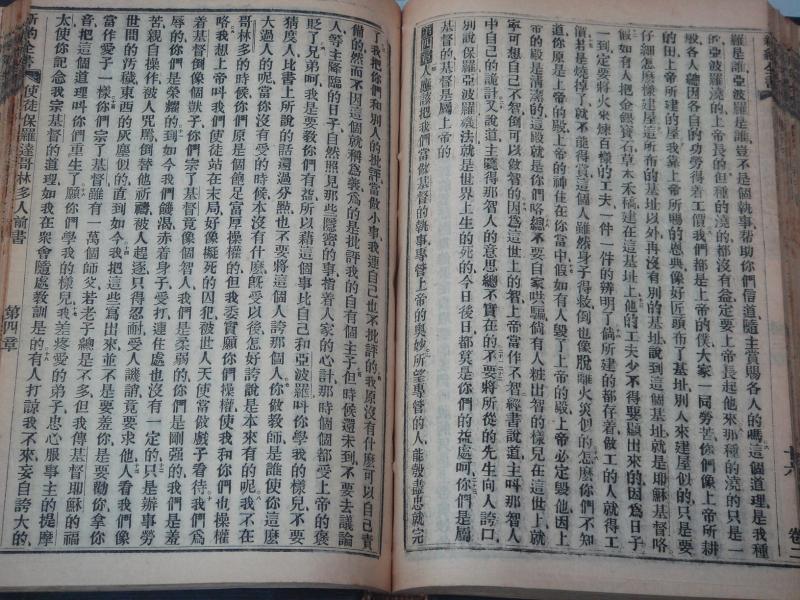 卷二
羅是誰亞波羅是誰豈不是個執事帮助你們信道隨主賞賜各人的嗎這個道理是我種
的亞波羅澆的上帝長的但種的澆的都沒有益定要上帝長起他來那種的澆的只是一
般各人總因各自的功勞得着工價我們都是上帝的僕大家一同勞苦你們像上帝所耕
的田上帝所建的屋我靠上帝所賜的恩典像好匠頭布了基址別人來建屋似的只是要
仔細怎麼樣建屋這所布的基址以外再沒有別的基址說到這個基址就是耶穌基督咯
假如有人把金銀寶石草木禾稿建在這基址上他的工夫少不得要顯出來的因爲日子
一到定要將火來煉百樣的工夫一件一件的辨明了倘所建的都存着做工的人就得工
價若是燒掉了就不能得賞這個人雖然身子得救倒也像脫離火災似的怎麼你們不知
道你原是上帝的殿上帝的神住在你當中假如有人毀了上帝的殿上帝必定毀他因上
帝的殿是清潔的這殿就是你們咯總不要自家哄騙倘有人粧出智的樣兒在這世上就
寧可想自己不智倒可以做智的因爲這世上的智上帝當作不智經書說道主叫那智人
中自己的詭計又說道主聽得那智人的意思總不實在的不要將所從的先生向人誇口
別說保羅亞波羅磯法就是世界上生的死的今日後日都莫是你們的益處呵你們是屬
基督的基督是屬上帝的
第四章人應該把我們當做基督的執事專管上帝的奧妙所望專管的人能彀盡忠就完
了我把你們和別人的批評當做小事我連自己也不批評的我原沒有什麽可以自己責
備的然而不因這個就稱爲義爲的是批評我的自有個主子但時候還未到不要去議論
人等主降臨的日子自然照見那些隱密的事指着人家的心計那時個個都受上帝的褒
貶了兄弟呵我是要敎你們有益所以藉這個事比自己和亞波羅呌你學我的樣兒不要
猜度人比書上所說的話還過分點也不要將這個人誇那個人你做敎師是誰使你這麽
大過人的呢當你沒有愛的時候本沒有什麽既受以後怎好誇說是本來有的呢我不在
哥林多的時候你們原是個飽足富厚操權的但我委實願你們操權使我和你們也操權
咯我想上帝呌我們使徒站在末局好像擬死的囚犯被世人天使當做戲子看待我們爲
着基督倒像個獃子你們宗了基督竟像個智人我們是柔弱的你們是剛强的我們是羞
辱的你們是榮耀的到如今我們饑渴赤着身子愛打連住處也沒有一定的只是辦事勞
苦親自操作被人咒罵倒替他祈禱被人趕逐只得忍耐受人譏誚竟要求他人看我們像
世間的汚穢東西的灰塵似的直到如今我把這些寫出來並不是要羞你是要勸你拿你
當作愛子一樣你們宗了基督雖有一萬個師父若老子總是不多但我傳基督耶穌的福
音把這個道理呌你們重生了願你們學我的樣兒我差疼愛的弟子忠心服事主的提摩
太使你記念我宗基督的道理如我在衆會隨處敎訓是的有人打諒我不來妄自誇大的
新約全書 使徒保羅達哥林多人前書 第四章